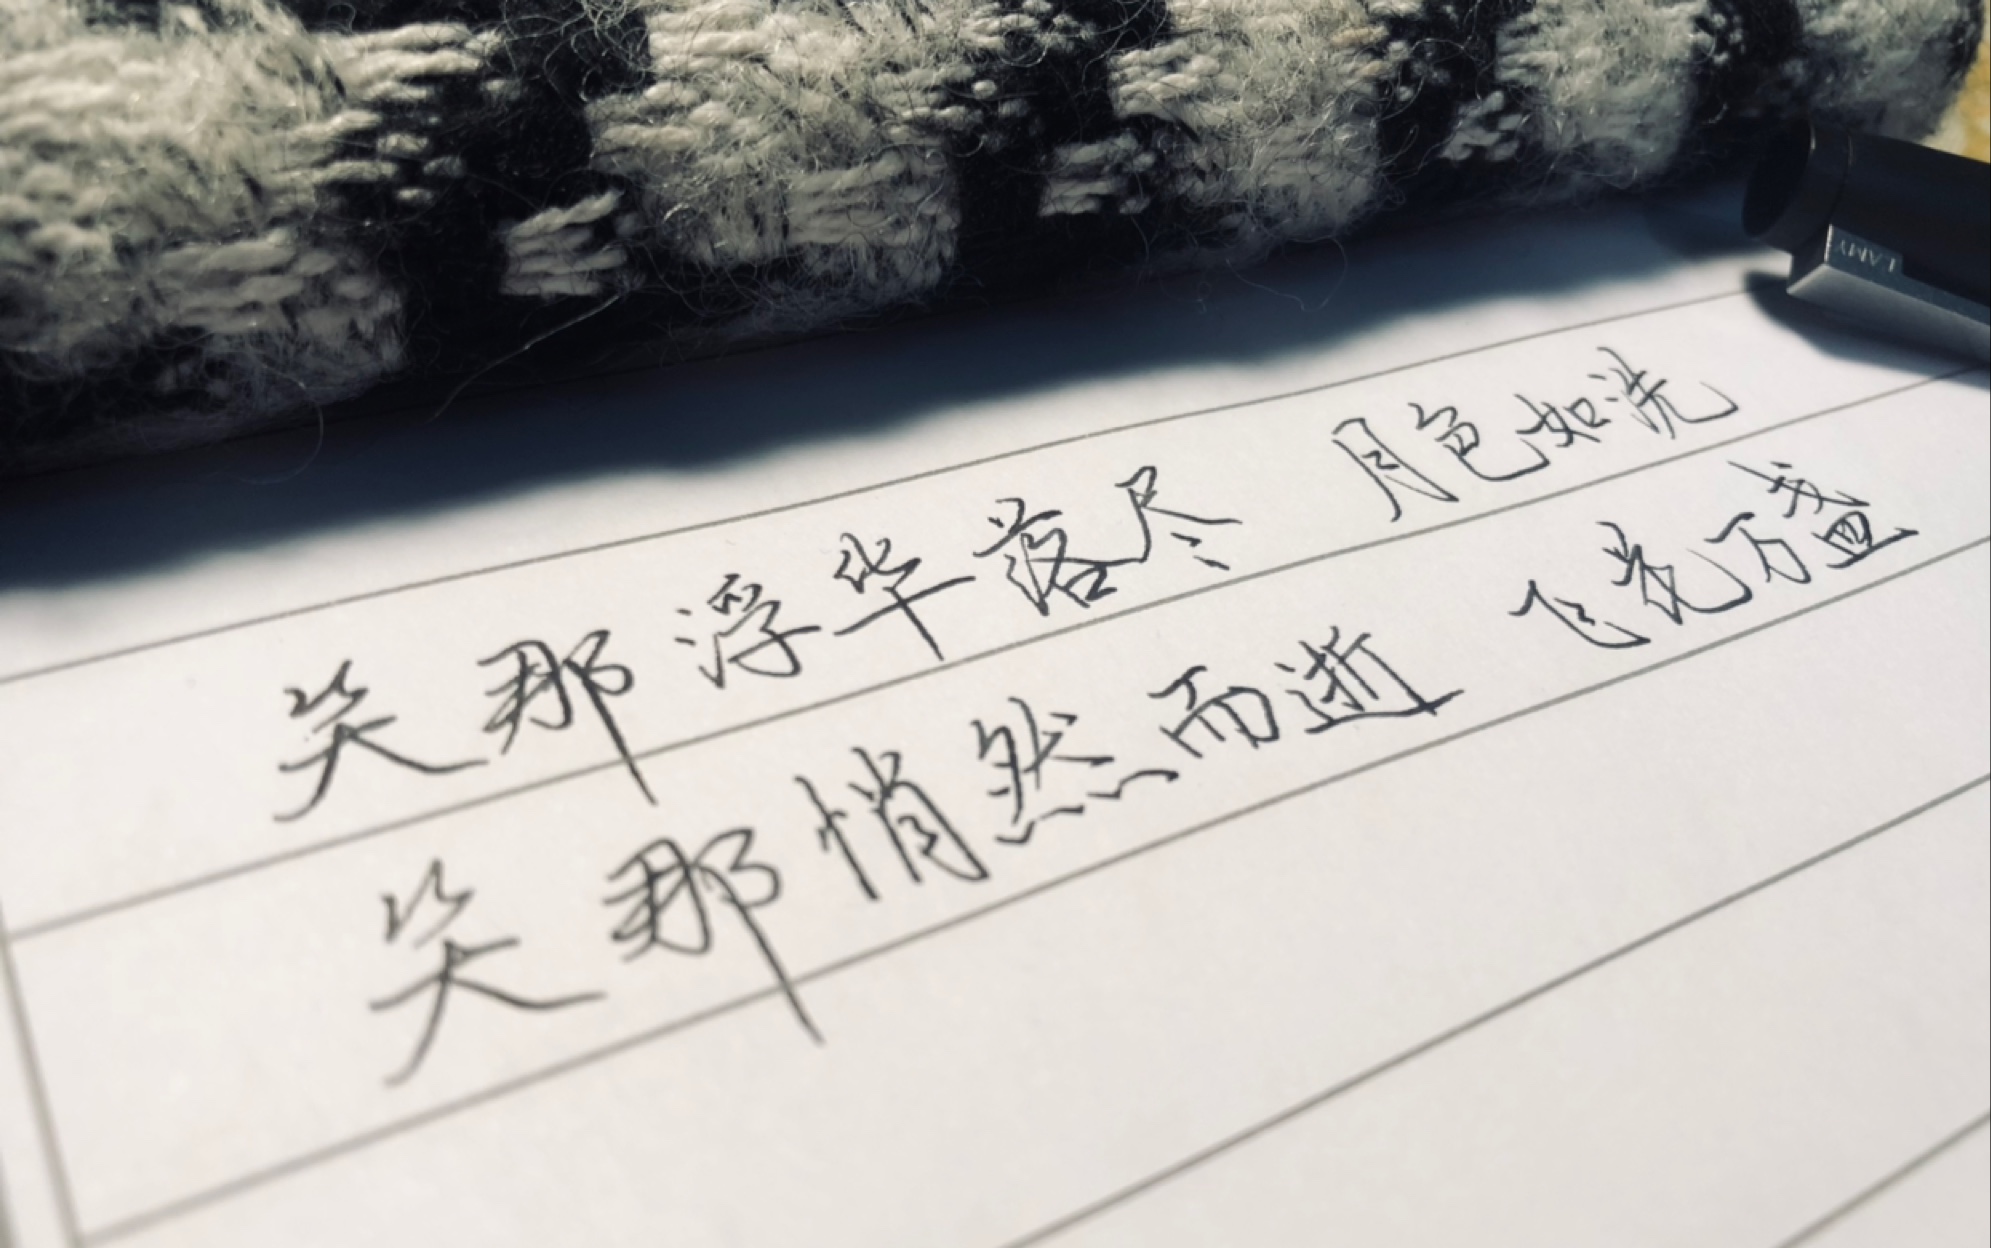 LAMY
笑那浮华落尽 月色如洗
笑那悄然而逝 飞花万盏